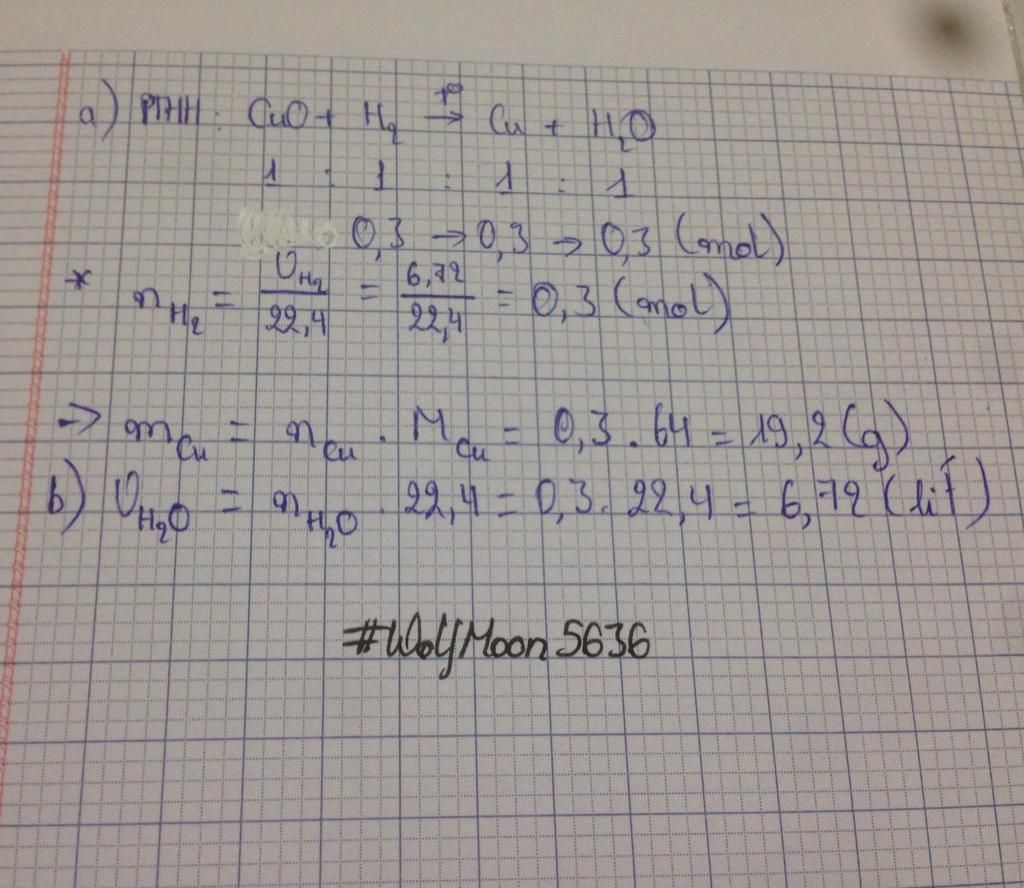 a) PTHH: CuO + H₂ →(t°) Cu + H₂O
1 : 1 : 1 : 1
0,3 → 0,3 → 0,3 (mol)
* n_H₂ = V_H₂/22,4 = 6,72/22,4 = 0,3 (mol)
→ m_Cu = n_Cu . M_Cu = 0,3 . 64 = 19,2 (g)
b) V_H₂O = n_H₂O . 22,4 = 0,3 . 22,4 = 6,72 (lít)
#WolfMoon5636